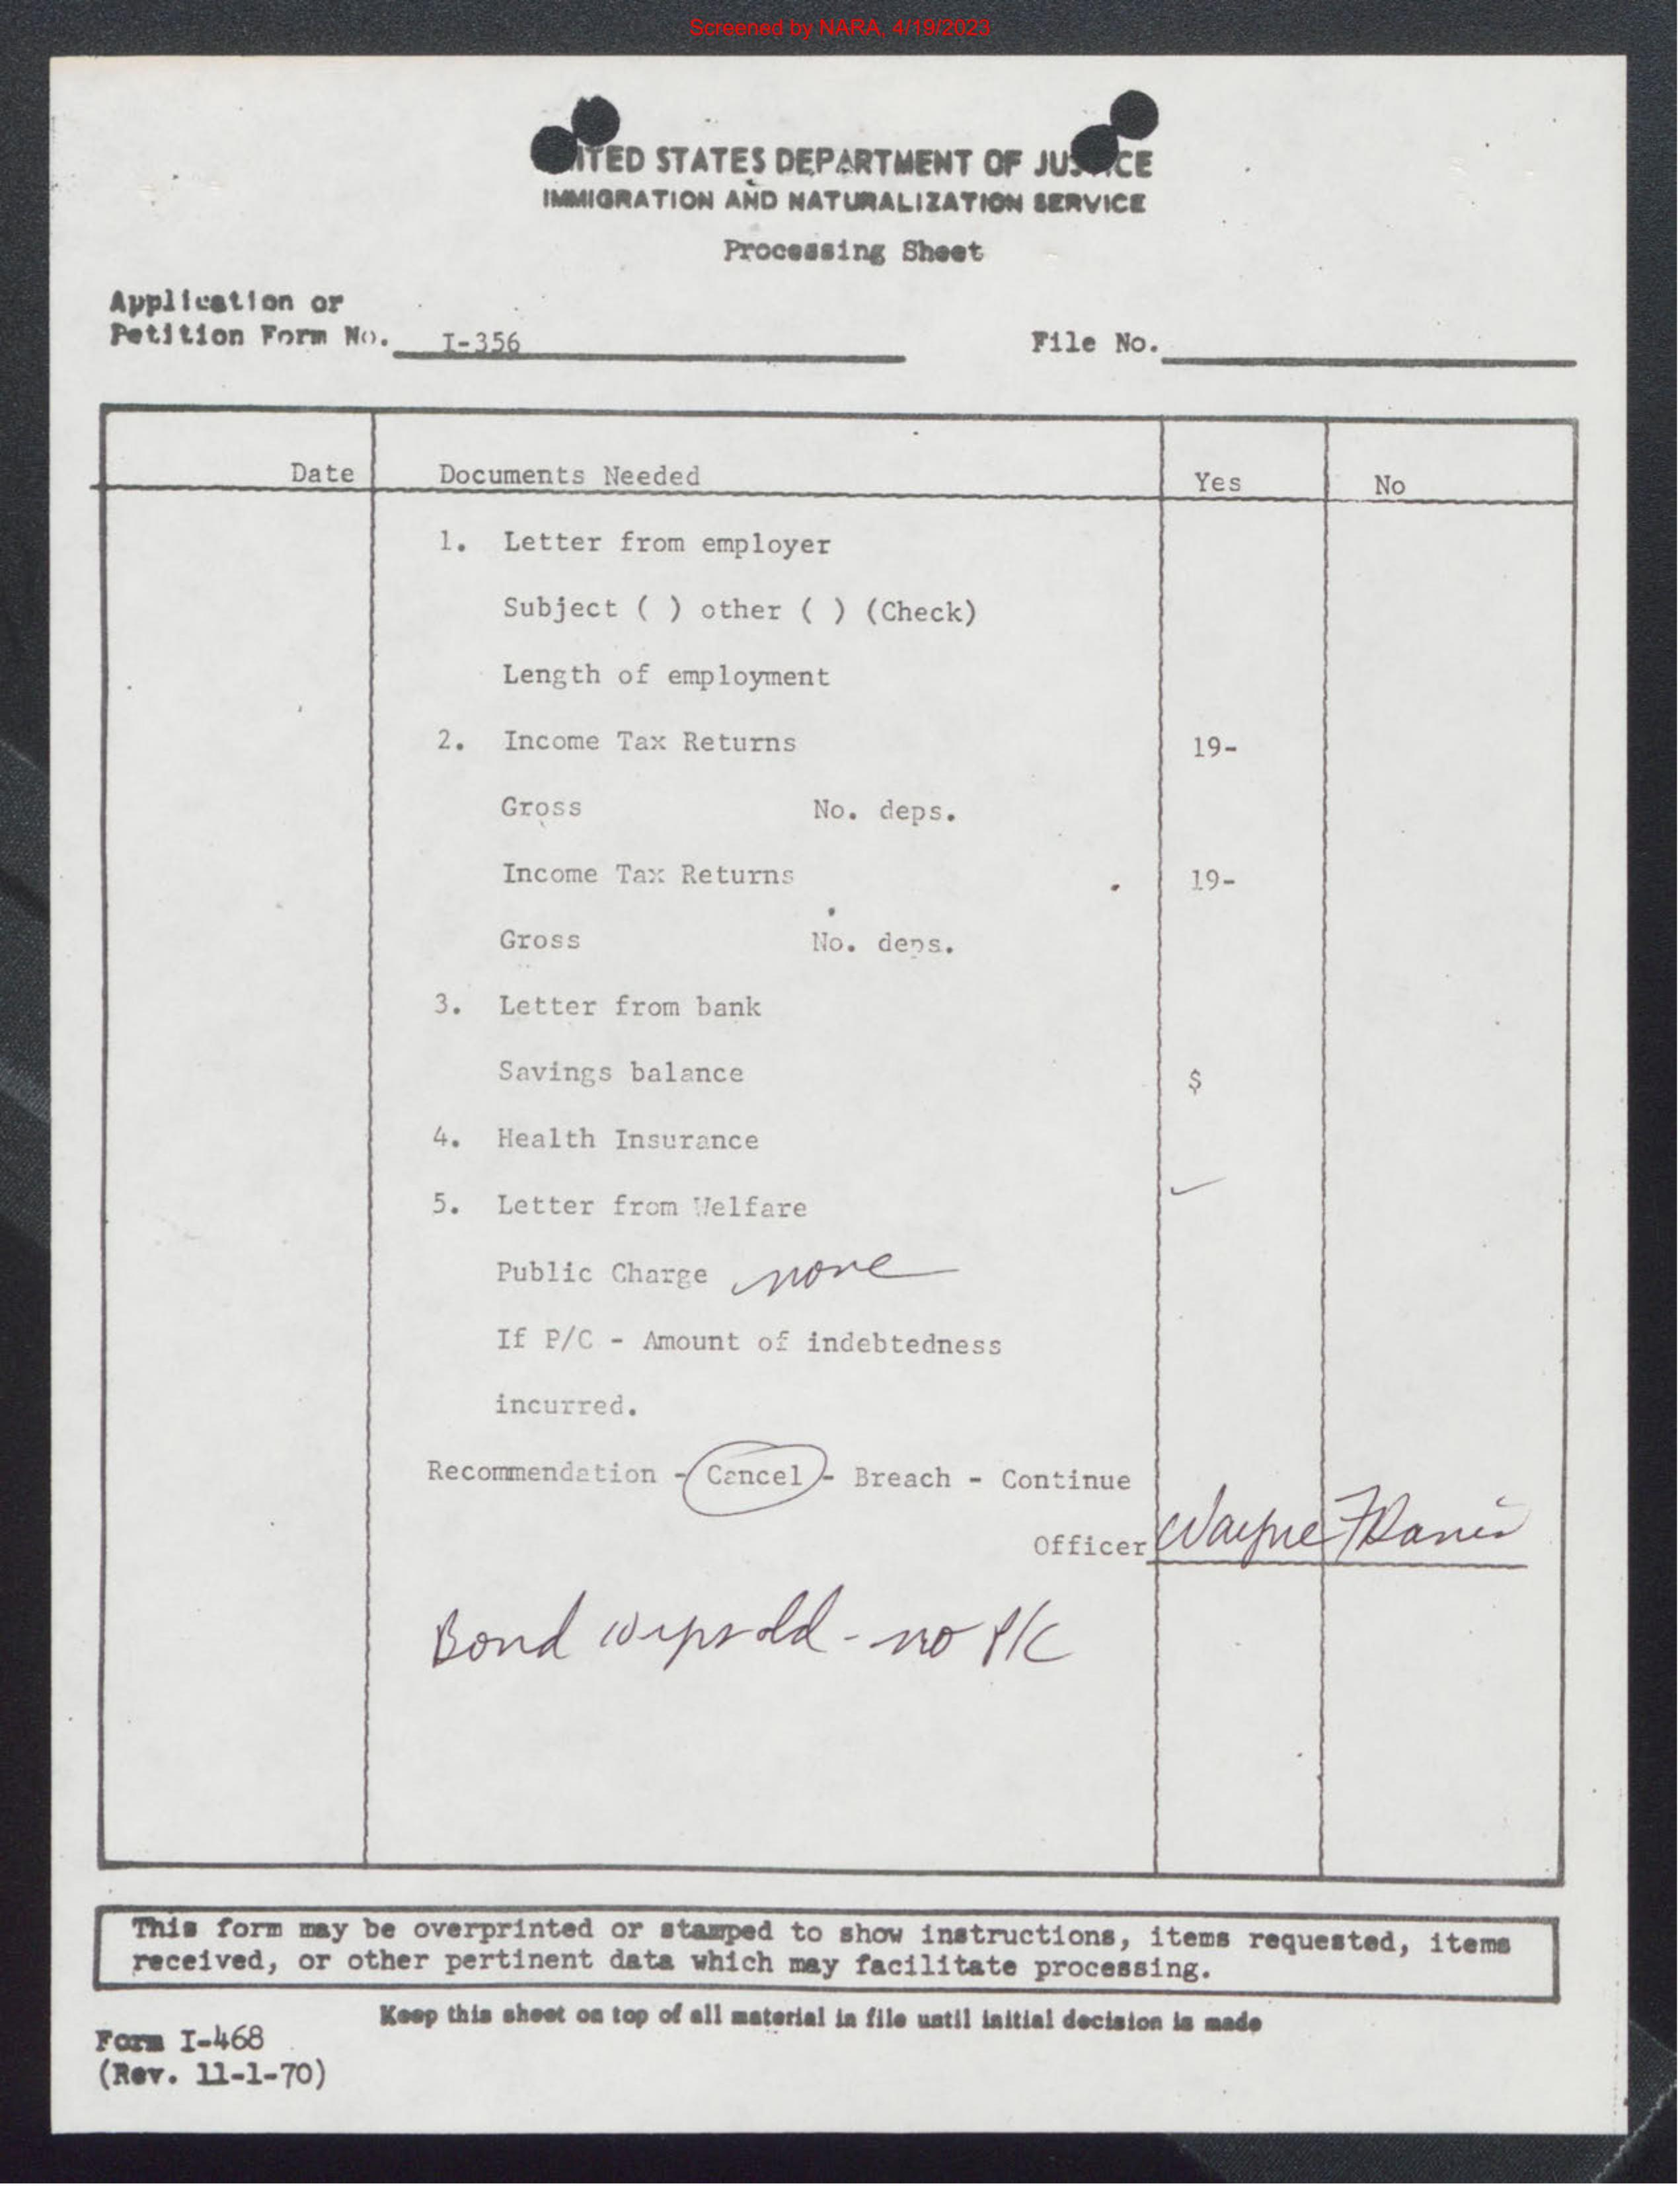 Screened by NARA, 4/19/2023
ITED STATES DEPARTMENT OF JUS CE
IMMIGRATION AND NATURALIZATION SERVICE
Processing Sheet
Application or
Petition Form No. I-356 File No.
Date Documents Needed Yes No
1. Letter from employer
Subject ( ) other ( ) (Check)
Length of employment
2. Income Tax Returns 19-
Gross No. deps.
Income Tax Returns 19-
Gross No. deps.
3. Letter from bank
Savings balance $
4. Health Insurance
5. Letter from Welfare ✓
Public Charge none
If P/C - Amount of indebtedness
incurred.
Recommendation - Cancel - Breach - Continue
Officer Wayne F
Bond - no P/C
This form may be overprinted or stamped to show instructions, items requested, items
received, or other pertinent data which may facilitate processing.
Keep this sheet on top of all material in file until initial decision is made
Form I-468
(Rev. 11-1-70)